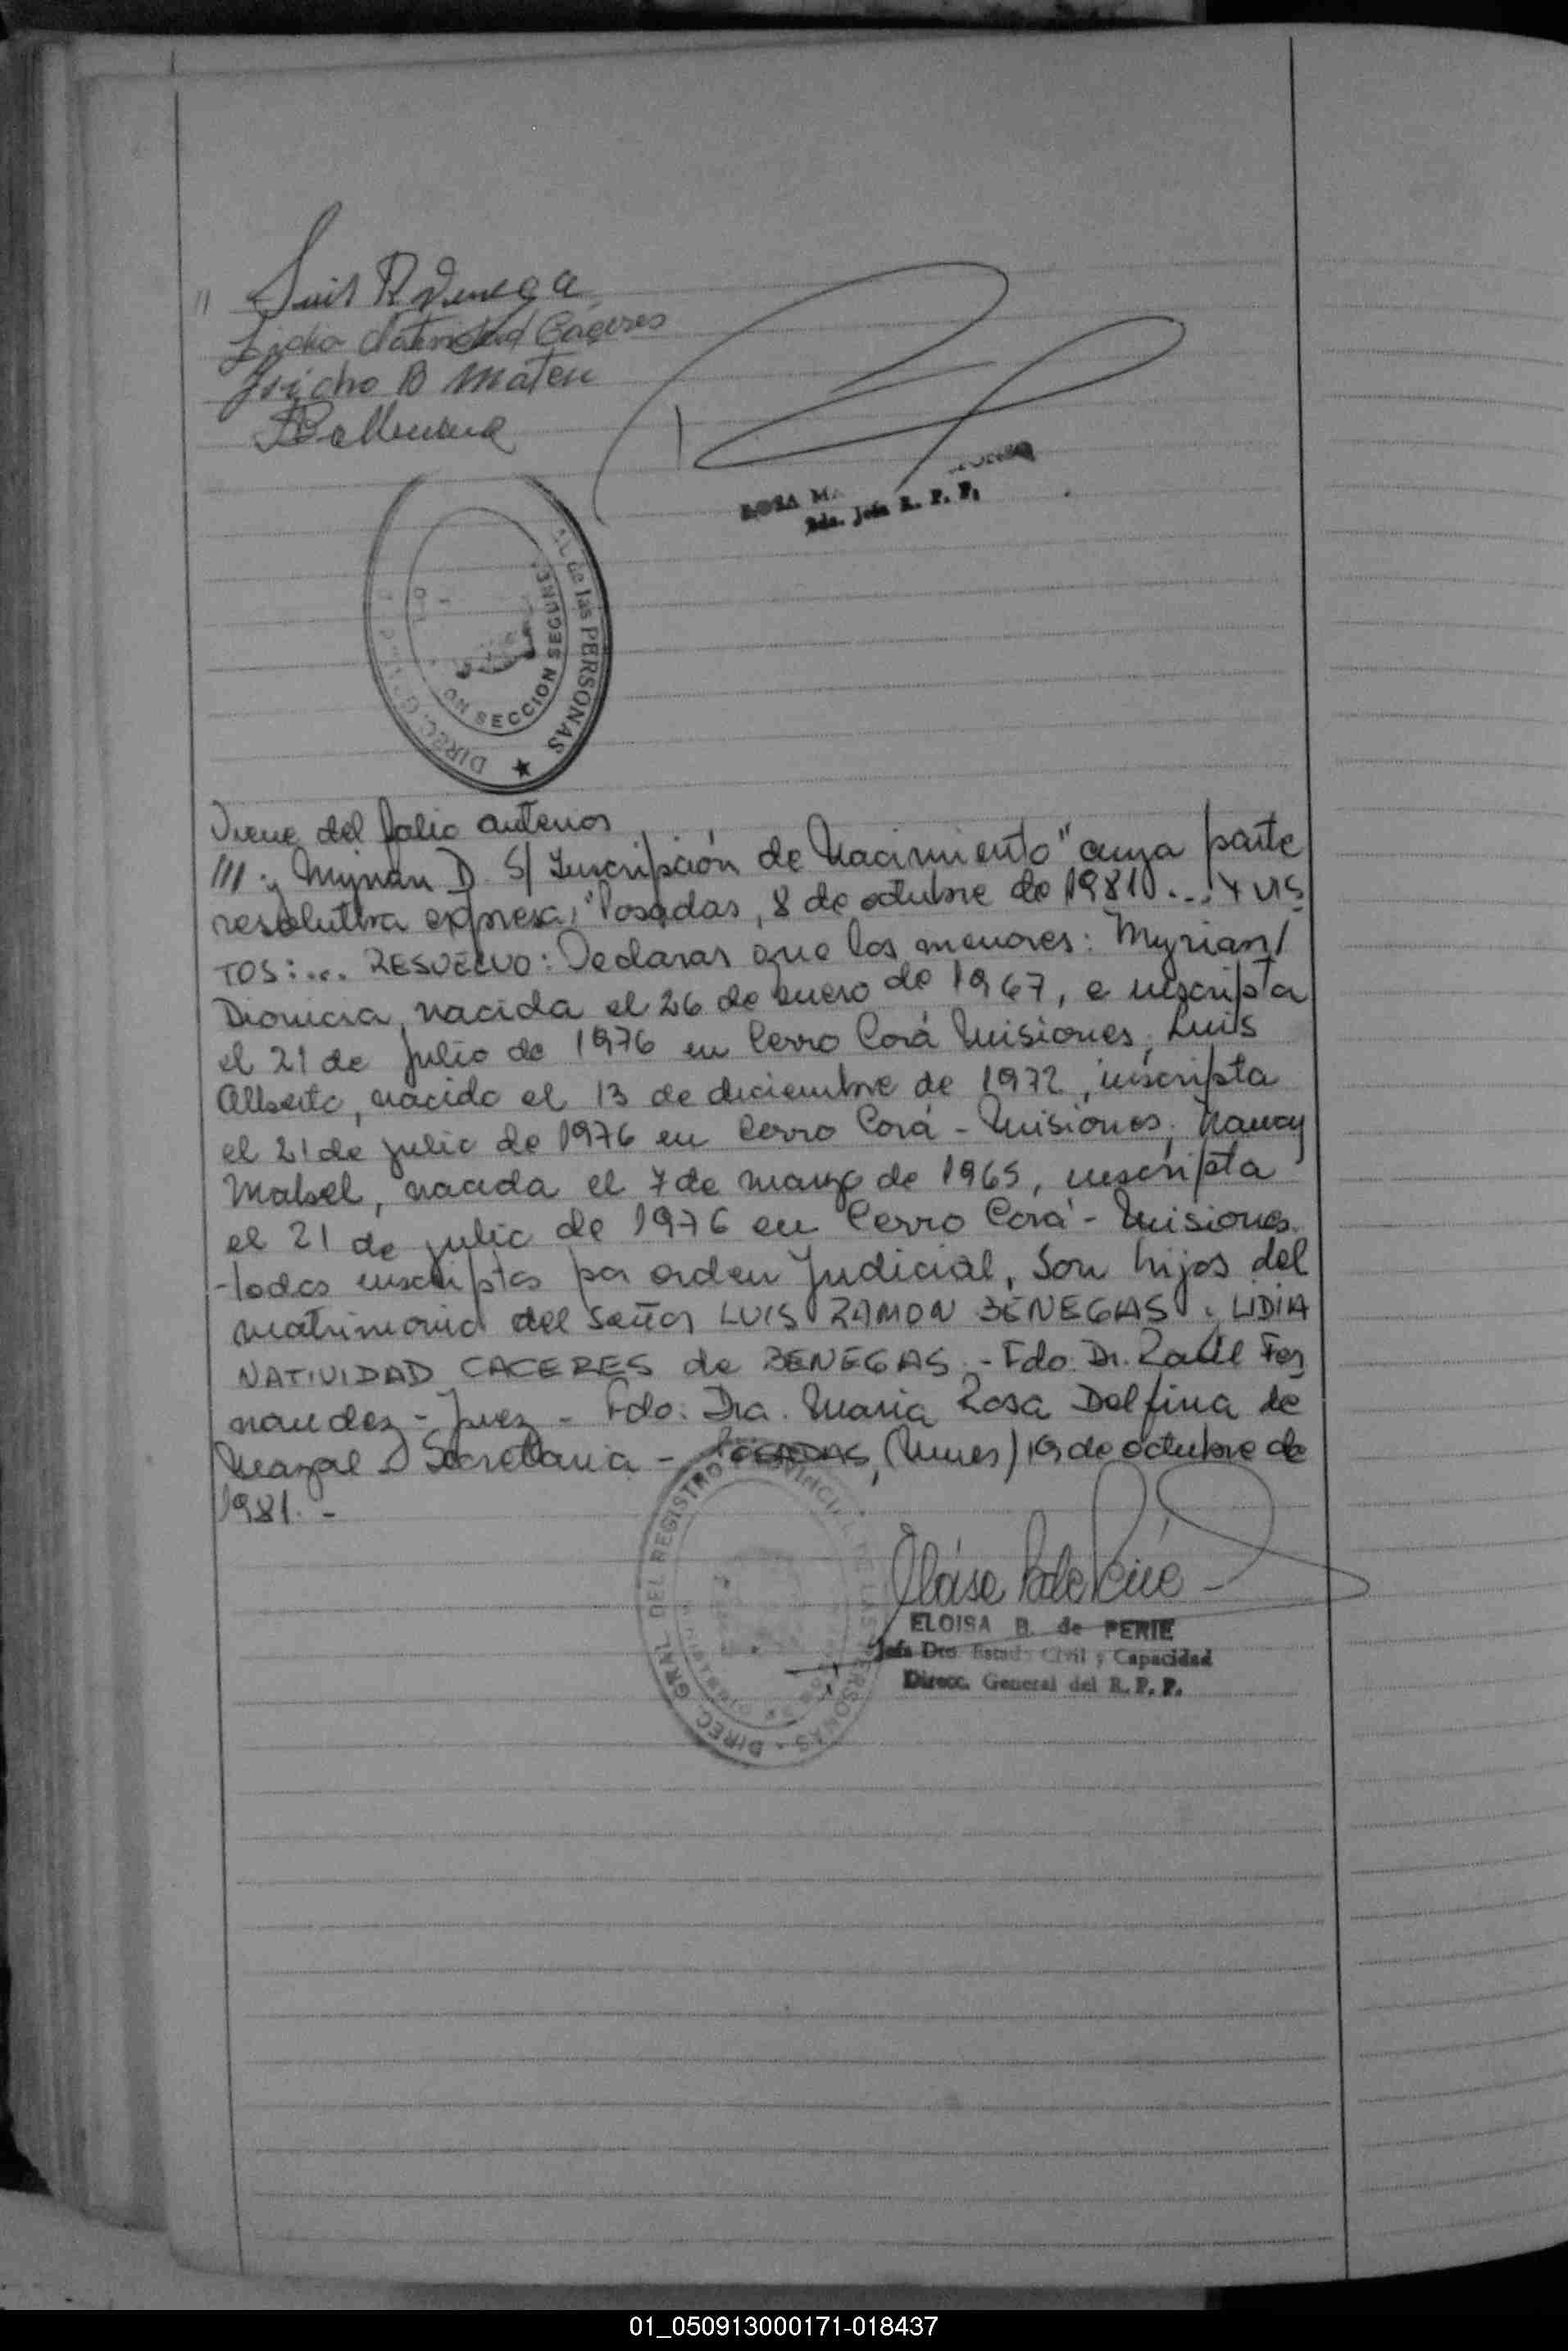 Luis R Venega
Lidia Natividad Cáceres
B Mateu
ROSA MA
Jefa R. P. P.
DIREC. G AL de las PERSONAS
SECCION SEGUN
Viene del folio anterior
/// y Myrian D. S/ Inscripción de Nacimiento" cuya parte
resolutiva expresa: "Posadas, 8 de octubre de 1981.... Y VIS
TOS:... RESUELVO: Declarar que los menores: Myrian/
Dionicia, nacida el 26 de enero de 1967, e inscripta
el 21 de julio de 1976 en Cerro Corá Misiones; Luis
Alberto, nacido el 13 de diciembre de 1972, inscripta
el 21 de julio de 1976 en Cerro Corá - Misiones; Nancy
Mabel, nacida el 7 de marzo de 1965, inscripta
el 21 de julio de 1976 en Cerro Corá - Misiones.
-todos inscriptos por orden Judicial, Son hijos del
matrimonio del Señor LUIS RAMON BENEGAS y LIDIA
NATIVIDAD CACERES de BENEGAS.- Fdo. Dr. Raúl Fer
nandez - Juez - Fdo: Dra. Maria Rosa Delfina de
Secretaria - POSADAS, (Mnes) 19 de octubre de
1981. -
DIREC. GRAL. DEL REGISTRO PROVINCIAL DE LAS PERSONAS
ELOISA B. de PERIE
Jefa Dto. Estado Civil y Capacidad
Direcc. General del R. P. P.
01_050913000171-018437